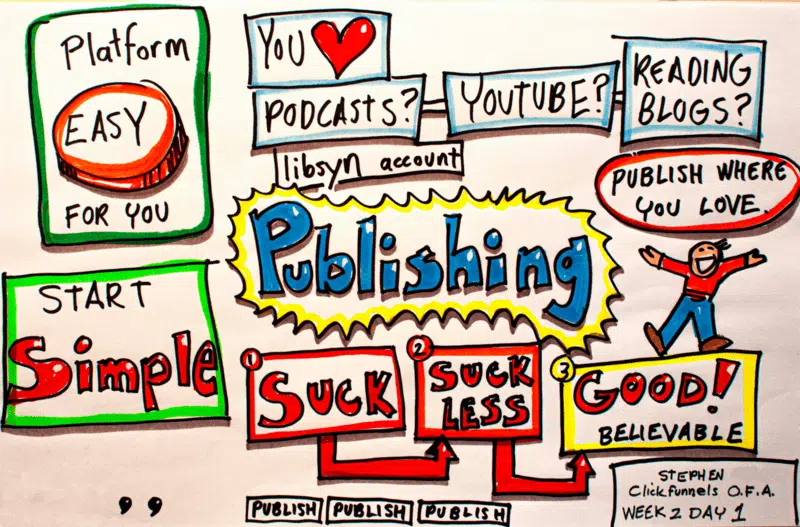 Platform
EASY
FOR YOU
YOU
PODCASTS?
YOUTUBE?
READING
BLOGS?
libsyn account
PUBLISH WHERE
YOU LOVE.
Publishing
START
Simple
1
SUCK
2
SUCK
LESS
3
GOOD!
BELIEVABLE
PUBLISH
PUBLISH
PUBLISH
STEPHEN
Clickfunnels O.F.A.
WEEK 2 DAY 1
,,